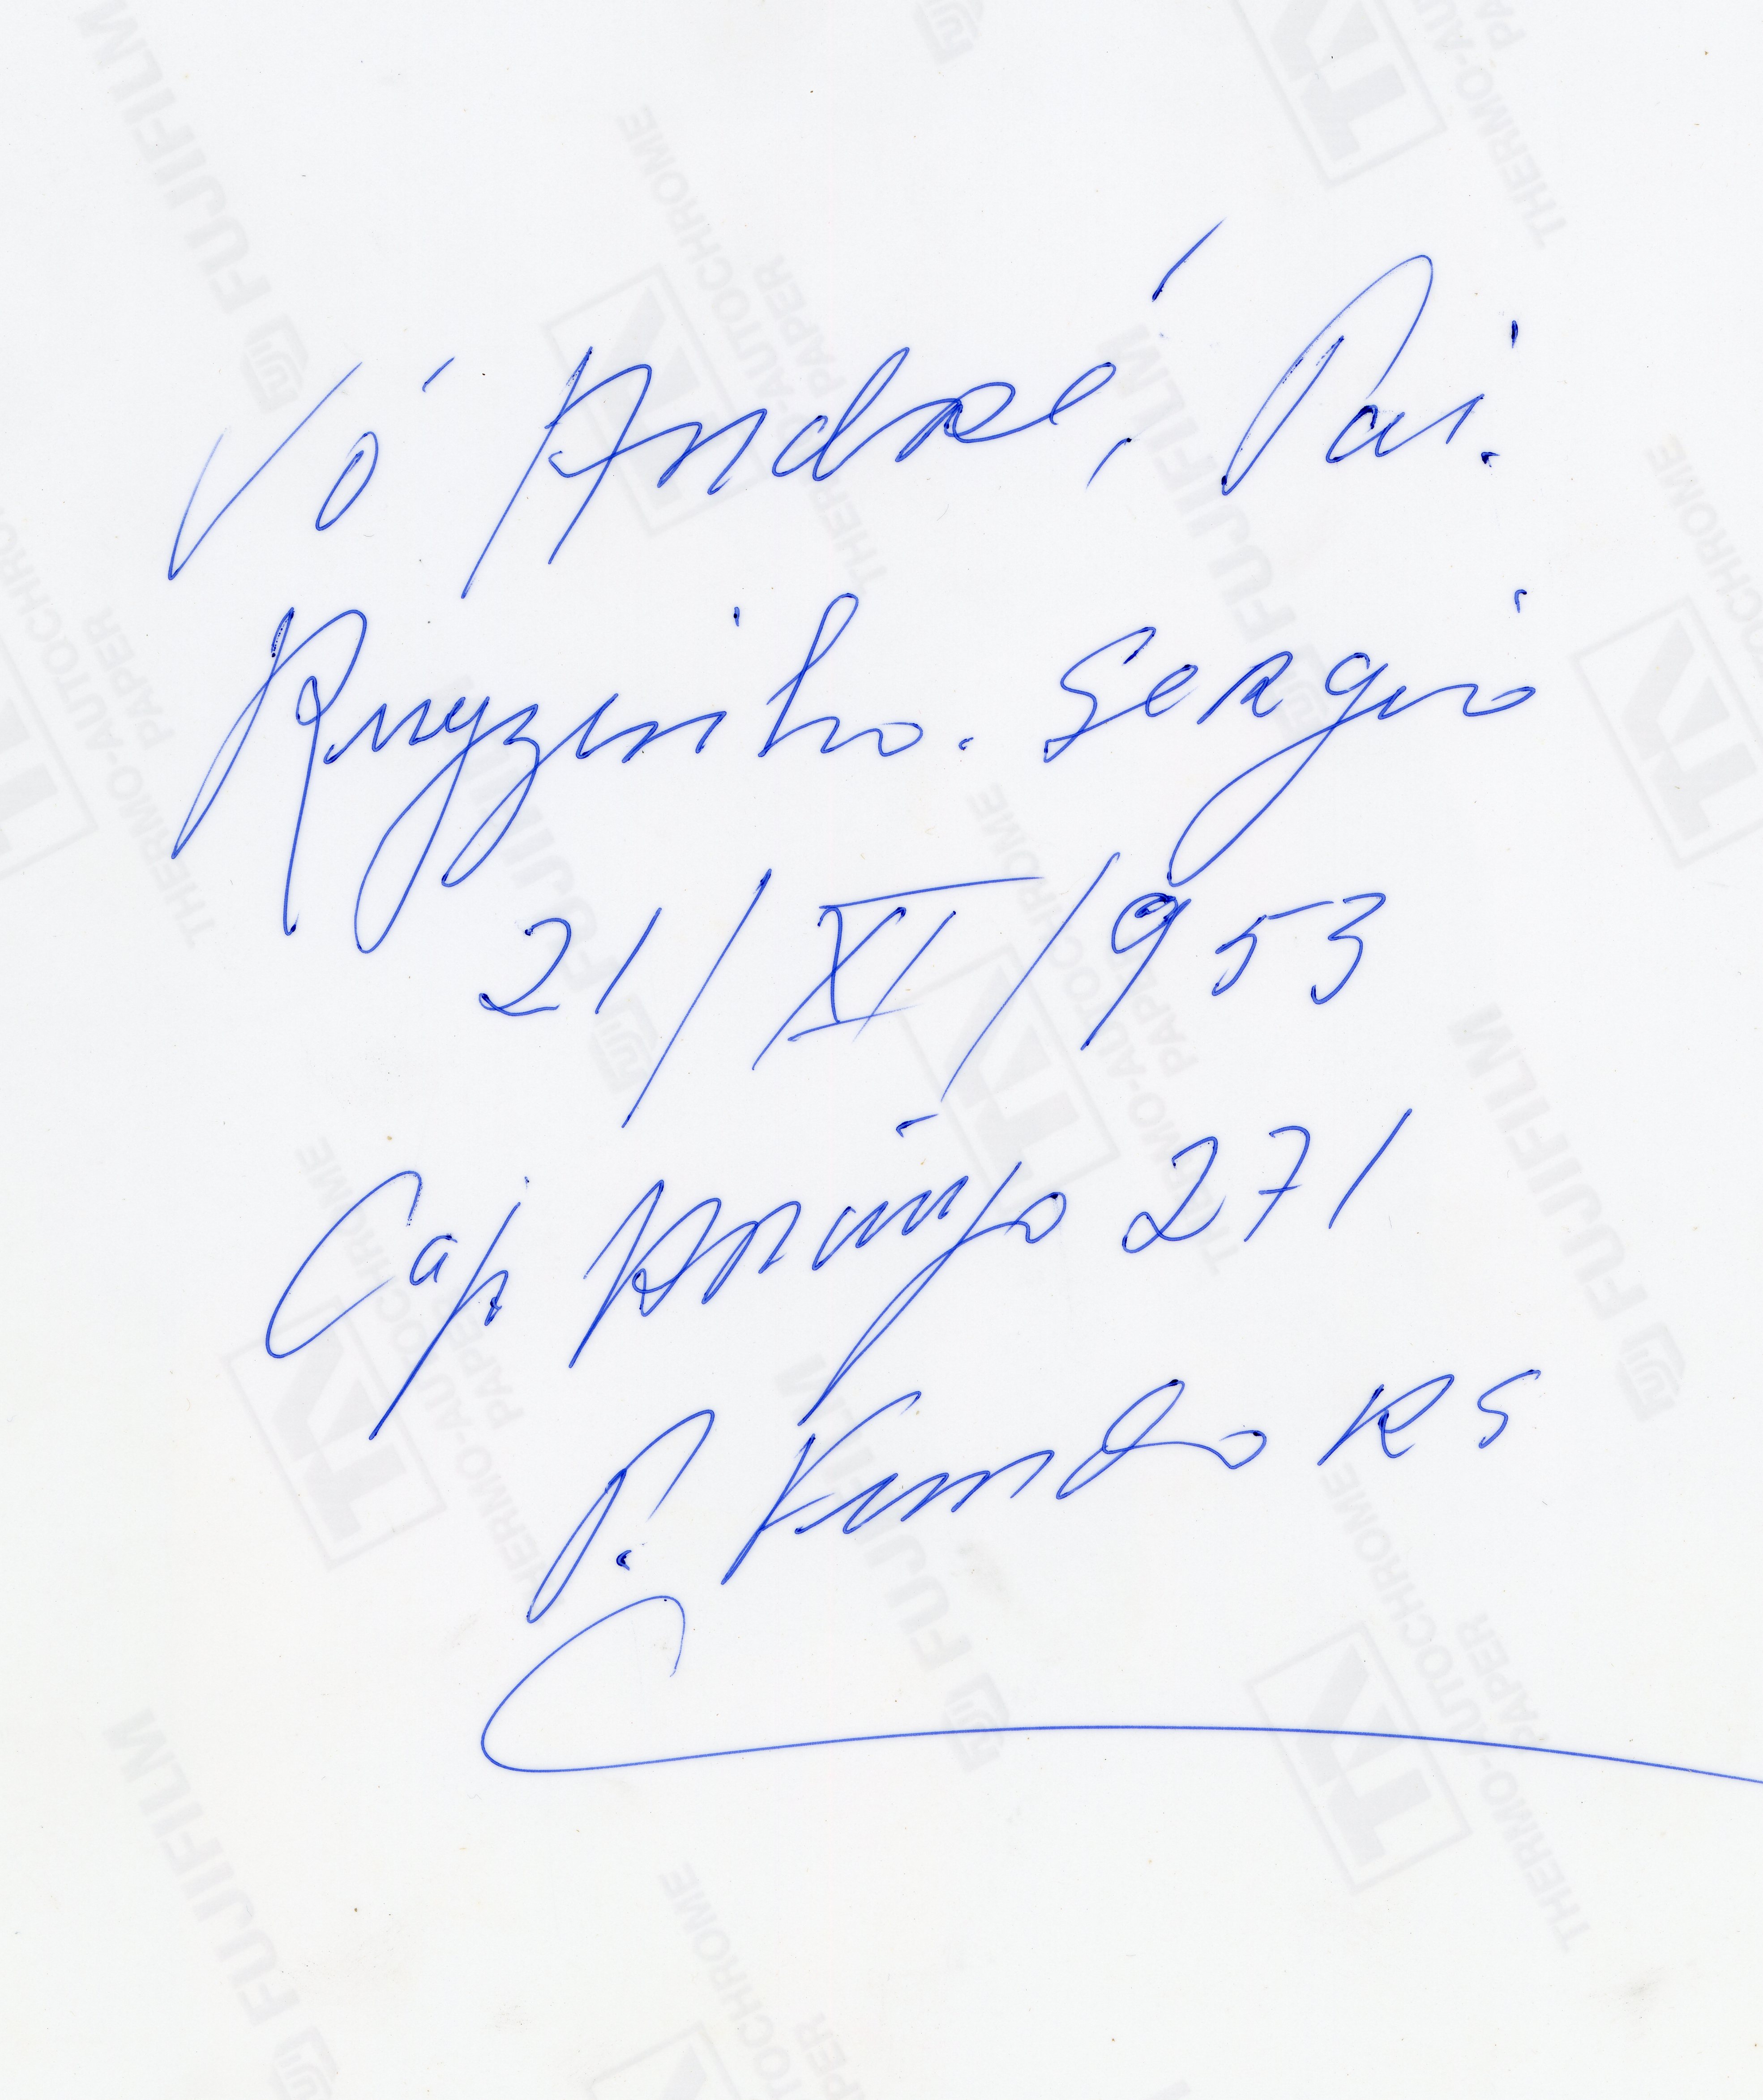 Vô André, Pai.
Ruyzinho. Sergio
21/XI/953
Cap Araújo 271
P. Fundo RS
FUJIFILM
THERMO-AUTOCHROME
PAPER
TA